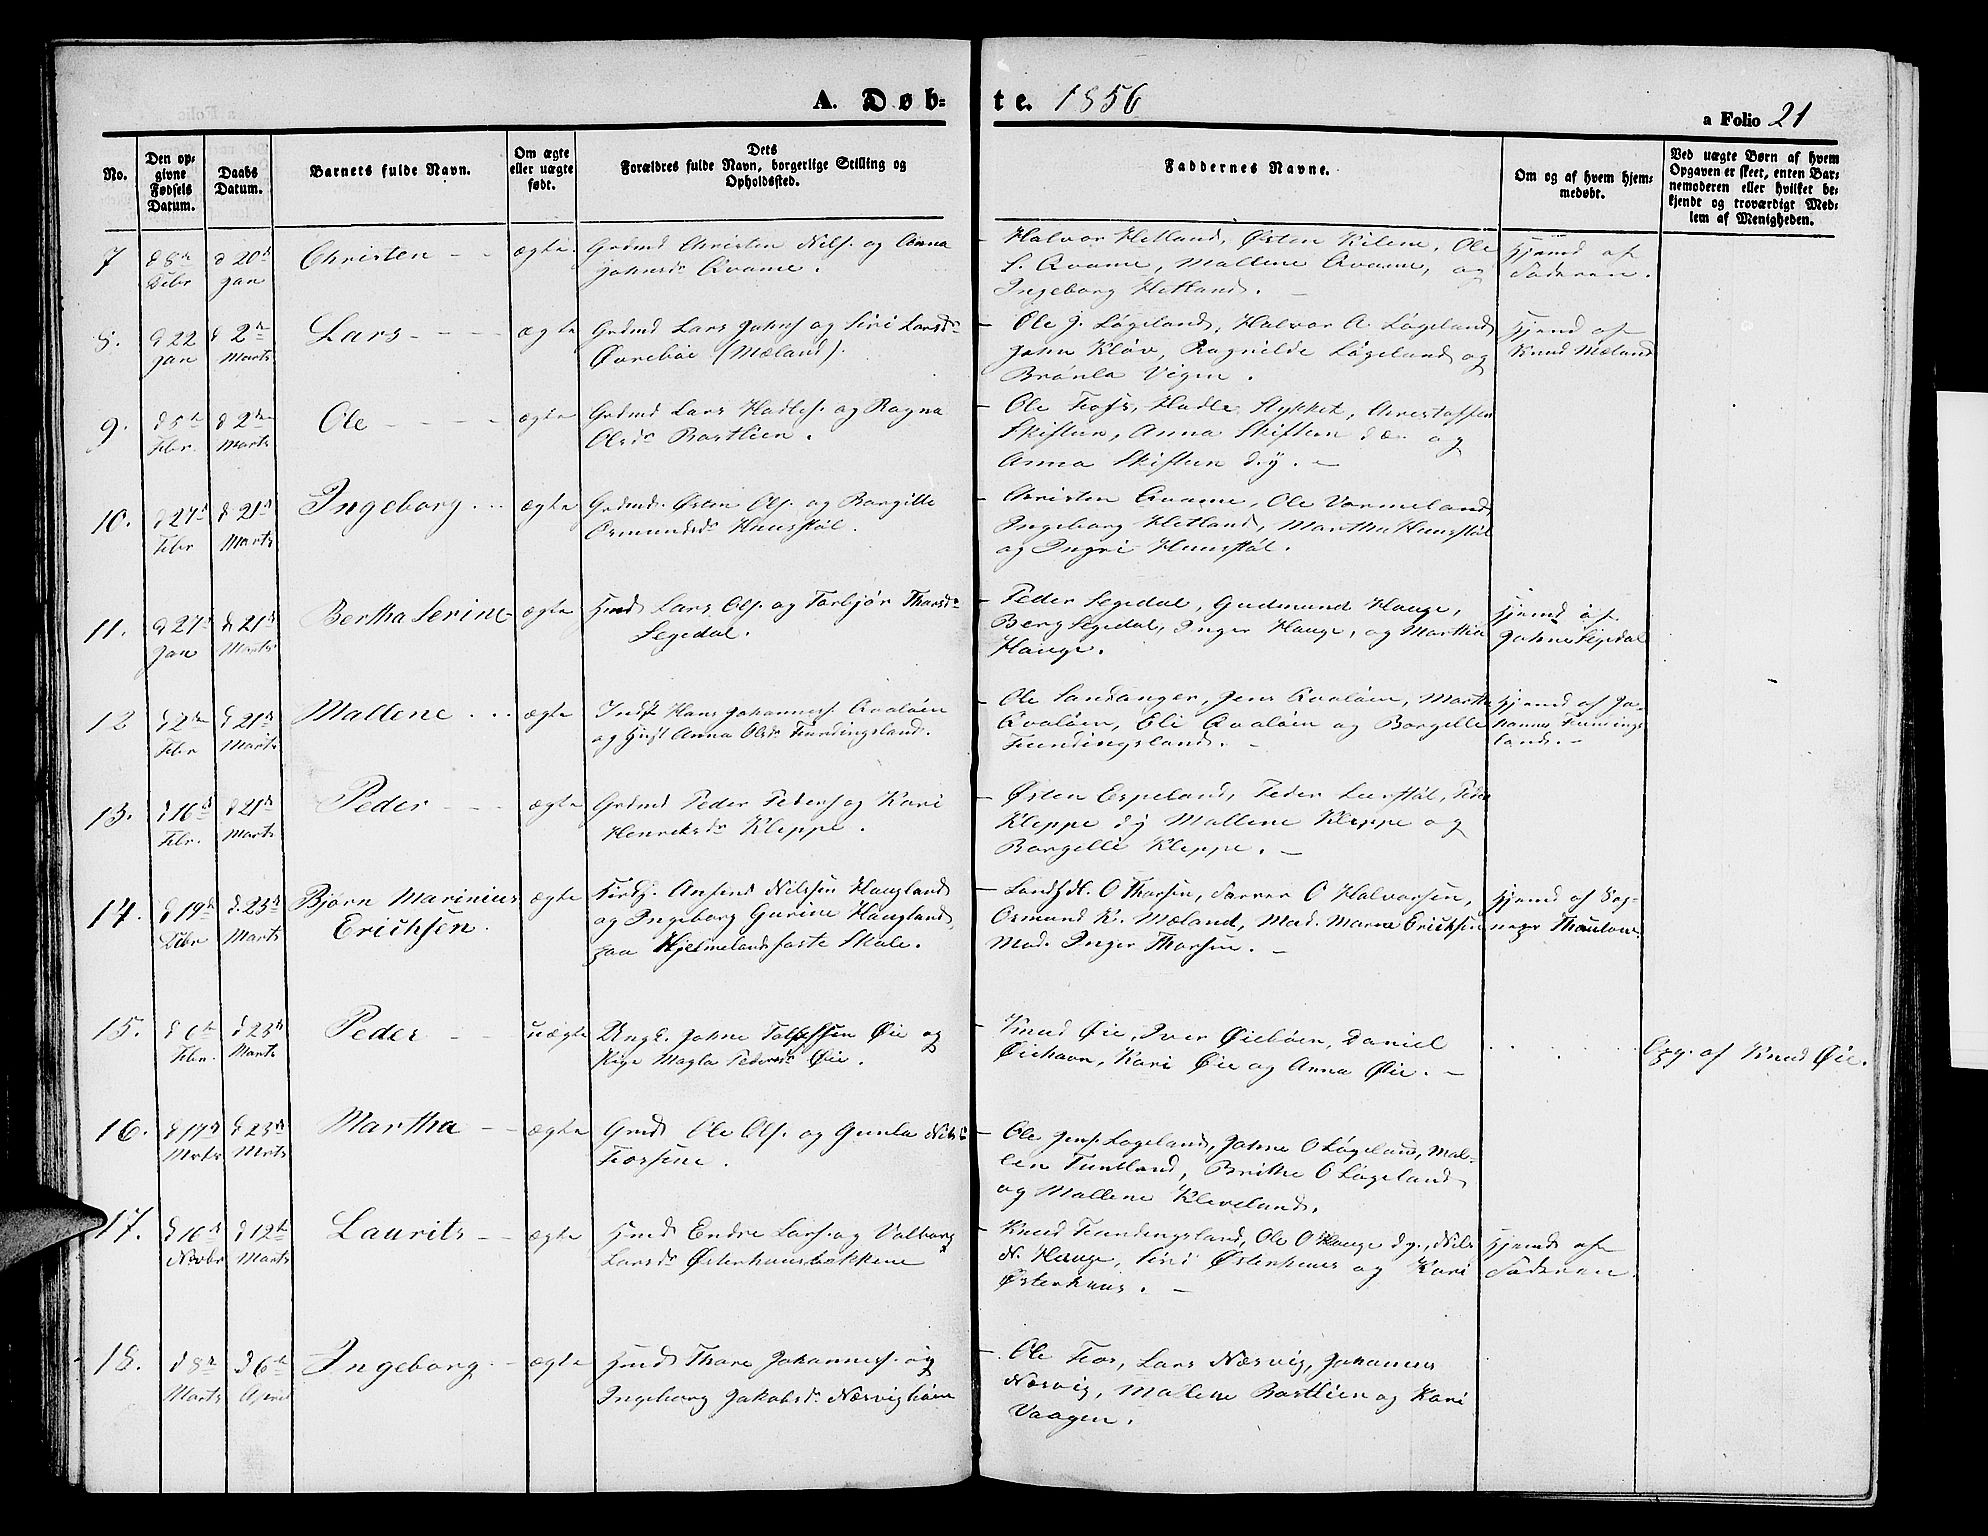 A. Døb=
te. 1856
a Folio 21
No.
Den op=
givne
Fødsels
Datum.
Daabs
Datum.
Barnets fulde Navn.
Om ægte
eller uægte
født.
Dets
Forældres fulde Navn, borgerlige Stilling og
Opholdssted.
Faddernes Navne.
Om og af hvem hjem=
medøbt.
Ved uægte Børn af hvem
Opgaven er skeet, enten Bar=
nemoderen eller hvilket be=
kjendt og troværdigt Med=
lem af Menigheden.
7
d 8de
Febr
d 20d
Jan
Christen - -
ægte
Grdmd Christen Nils. og Anna
Johnsdr Qvame.
- Halvor Hetland, Østen Kilene, Ole
S. Qvame, Mallene Qvame, og
Ingeborg Hetland. -
Hjemd af
Faderen.
8.
d 22
Jan
d 2de
Marts
Lars - - -
ægte
Grdmd Lars Johns og Siri Larsdr
Øvrebøe (Mæland).
- Ole J. Løgeland, Halvor A. Løgeland
John Kløv, Ragnilde Løgeland og
Brønla Vigen.
Hjemd af
Knud Mæland
9.
d 5te
Febr.
d 2den
Marts
Ole - - - -
ægte
Grdmd Lars Hadles. og Ragna
Olsdr Bastlien.
- Ole Foss, Hadle Stykket, Christoffen
Skiftun, Anna Skiftun d.æ. og
Anna Skiftun d.y. -
10.
d 27d
Febr
d 21d
Marts
Ingeborg ...
ægte
Grdmd. Østen Ols. og Borgille
Osmundsdr Huusstøl.
- Christen Qvame, Ole Vormeland
Ingeborg Hetland, Martha Huusstøl
og Ingri Huusstøl.
11.
d 27d
Jan
d 21d
Marts
Bertha Serine
ægte
Hmd Lars Ols. og Torbjør Thorsdr
Segedal.
- Peder Segedal, Gudmund Hauge,
Berg Segedal, Inger Hauge, og Martha
Hauge.
Hjemd af
Johne Segedal
12
d 2den
Febr
d 21d
Marts
Mallene ...
ægte
Inds. Hans Johannes. Qvaløen
og Hust Anna Olsdr Fundingsland.
- Ole Sandanger, Jens Qvaløen, Martha
Qvaløen, Eli Qvaløen og Borgelle
Fundingsland. -
Hjemd af Jo-
hannes Fundings
land. -
13.
d 16d
Febr.
d 21d
Marts
Peder - - -
ægte
Grdmd Peder Peders og Kari
Henriksdr Kleppe.
- Østen Espeland, Peder Leerstøl, Peder
Kleppe dy Mallene Kleppe og
Borgelle Kleppe. -
14.
d 19de
Febr
d. 23d
Marts
Bjørn Marinius
Erichsen.
ægte
Kirks. Ansend Nilssen Haugland
og Ingeborg Gurine Haugland,
paa Hjelmelands faste Skole.
- Landh. O Thorsen, Farver O Halvorsen,
Osmund K. Mæland, Mad. Maren Erichsen
Mad. Inger Thorsen. -
Hjemd af Sog-
nepr Thaulow.
15.
d 6te
Febr.
d 23d
Marts
Peder - -
uægte
Ungk. Johne Tollefsen Øie og
Pige Magla Pedersdr Øie.
- Knud Øie, Iver Øiebøen, Daniel
Øiehavn, Kari Øie og Anna Øie. -
. . . . . .
Opg. af Knud Øie.
16.
d 17d
Marts
d 23d
Marts
Martha - -
ægte
Grmd Ole Ols. og Gunla Nilsdr
Fossene.
- Ole Jens. Løgeland, Johne O Løgeland, Mal-
len Tuntland, Brithe O Løgeland
og Mallene Kleveland.
17.
d 16d
Novbr
d 12te
Marts
Laurits - -
ægte
Hmd Endre Lars. og Valborg
Larsdr Østerhuusbakkene
- Knud Fundingsland, Ole O Hauge d.y., Nils
N. Hauge, Siri Østerhuus og Kari
Østerhuus. -
Hjemd af
Faderen.
18.
d 8de
Marts
d 6te
April
Ingeborg. -
ægte
Hmd Thore Johannes. og
Ingeborg Jakobsdr Næsvighøie
- Ole Fos, Lars Næsvig, Johannes
Næsvig, Malene Bastlien og Kari
Vaagen.